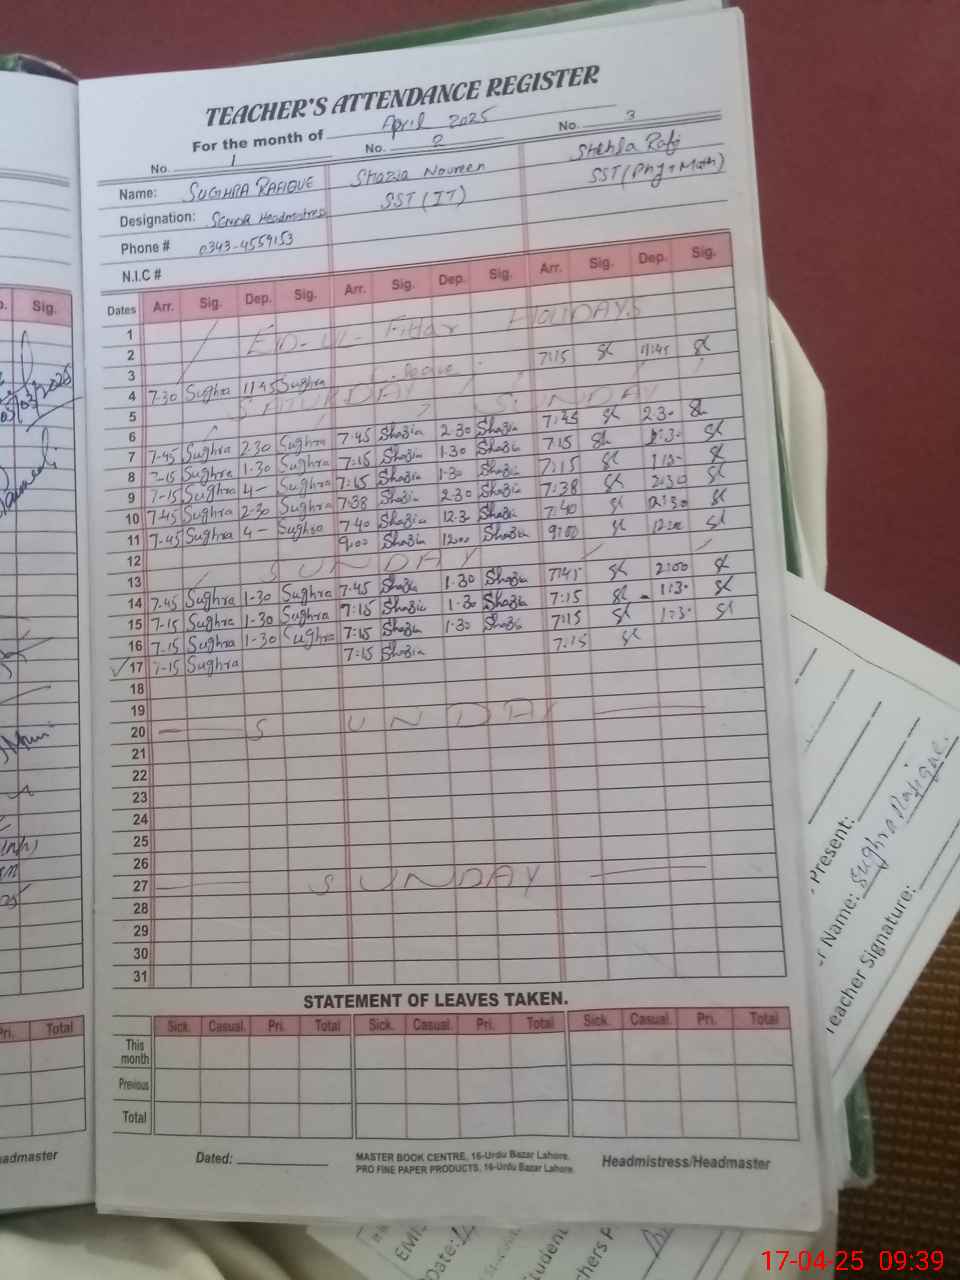 TEACHER'S ATTENDANCE REGISTER
For the month of April 2025
No. 1 No. 2 No. 3
Name: SUGHRA RAFIQUE Shazia Noureen Shehla Rafi
Designation: Senior Headmistress SST (IT) SST (Phy+Math)
Phone # 0343-4559153
N.I.C #
Dates Arr. Sig. Dep. Sig. Arr. Sig. Dep. Sig. Arr. Sig. Dep. Sig.
1
2 EID-UL-Fittar HOLIDAYS
3
4 7-30 Sughra 11-45 Sughra Leave 7:15 11:45
5 SATURDAY SUNDAY
6
7 7-45 Sughra 2-30 Sughra 7-45 Shazia 2-30 Shazia 7:45 2:30
8 7-15 Sughra 1-30 Sughra 7:15 Shazia 1-30 Shazia 7:15 1:30
9 7-15 Sughra 4- Sughra 7:15 Shazia 1-30 Shazia 7:15
10 7-45 Sughra 2-30 Sughra 7:38 Shazia 2-30 Shazia 7:38 2:30
11 7-45 Sughra 4- Sughra 7:40 Shazia 12.3 Shazia 7:40 12:30
12 9:00 Shazia 12:00 Shazia 9:00 12:00
13 SUNDAY
14 7-45 Sughra 1-30 Sughra 7-45 Shazia 1-30 Shazia 7:45 2:00
15 7-15 Sughra 1-30 Sughra 7:15 Shazia 1-30 Shazia 7:15 1:30
16 7-15 Sughra 1-30 Sughra 7:15 Shazia 1-30 Shazia 7:15 1:30
17 7-15 Sughra 7:15 Shazia 7:15
18
19
20 SUNDAY
21
22
23
24
25
26
27 SUNDAY
28
29
30
31
STATEMENT OF LEAVES TAKEN.
Sick. Casual. Pri. Total Sick. Casual. Pri. Total Sick. Casual. Pri. Total
This month
Previous
Total
Dated:
MASTER BOOK CENTRE, 16-Urdu Bazar Lahore.
PRO FINE PAPER PRODUCTS, 16-Urdu Bazar Lahore.
Headmistress/Headmaster
Sig.
03/03/2025
Pri. Total
Present:
Name: Sughra Rafique
Teacher Signature:
EMIS
Date:
17-04-25 09:39